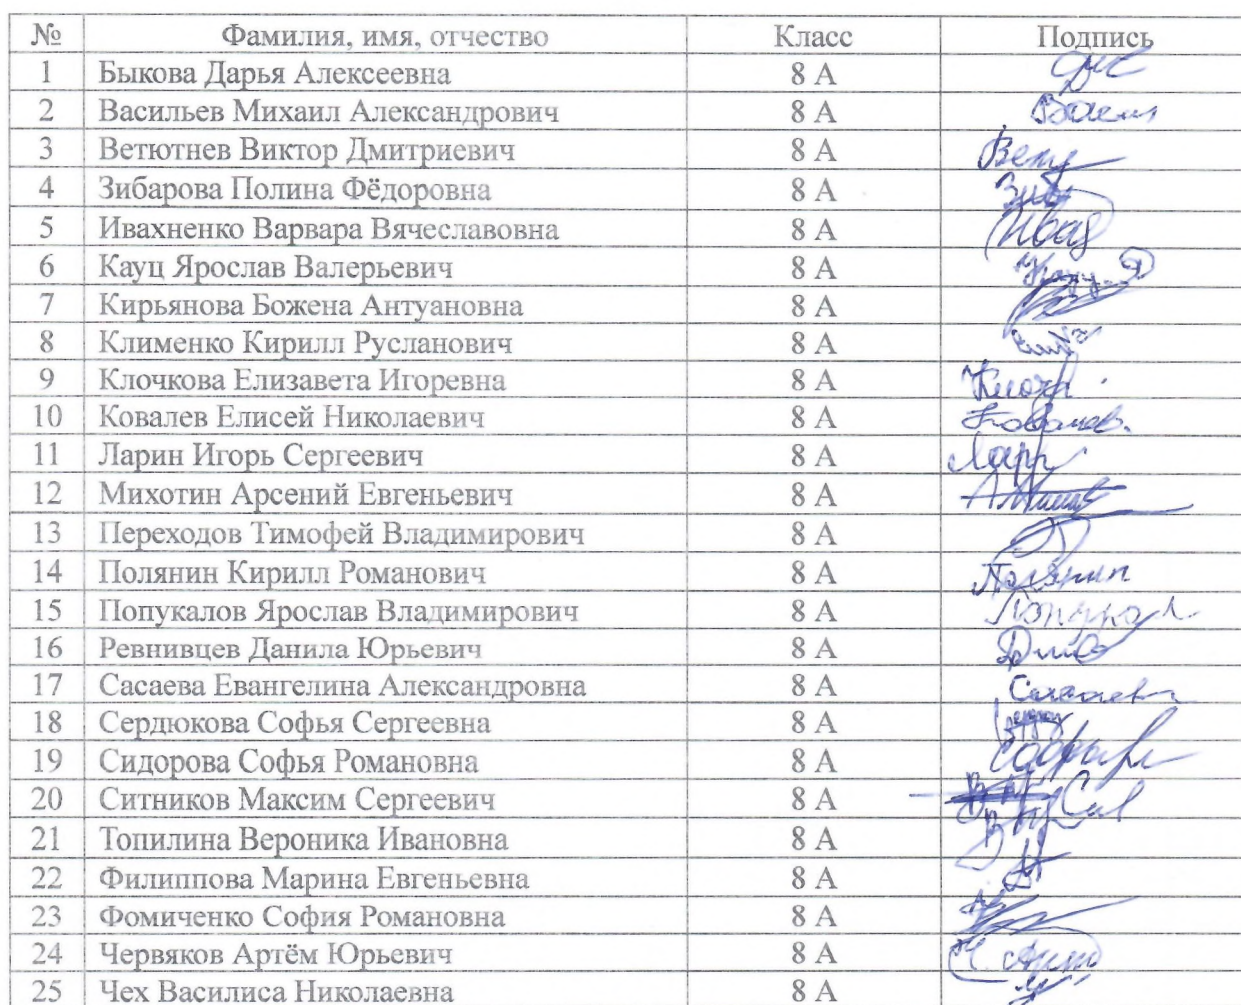 № Фамилия, имя, отчество Класс Подпись
1 Быкова Дарья Алексеевна 8 А
2 Васильев Михаил Александрович 8 А
3 Ветютнев Виктор Дмитриевич 8 А
4 Зибарова Полина Фёдоровна 8 А
5 Ивахненко Варвара Вячеславовна 8 А
6 Кауц Ярослав Валерьевич 8 А
7 Кирьянова Божена Антуановна 8 А
8 Клименко Кирилл Русланович 8 А
9 Клочкова Елизавета Игоревна 8 А
10 Ковалев Елисей Николаевич 8 А
11 Ларин Игорь Сергеевич 8 А
12 Михотин Арсений Евгеньевич 8 А
13 Переходов Тимофей Владимирович 8 А
14 Полянин Кирилл Романович 8 А Полянин
15 Попукалов Ярослав Владимирович 8 А
16 Ревнивцев Данила Юрьевич 8 А
17 Сасаева Евангелина Александровна 8 А
18 Сердюкова Софья Сергеевна 8 А
19 Сидорова Софья Романовна 8 А
20 Ситников Максим Сергеевич 8 А
21 Топилина Вероника Ивановна 8 А
22 Филиппова Марина Евгеньевна 8 А
23 Фомиченко София Романовна 8 А
24 Червяков Артём Юрьевич 8 А
25 Чех Василиса Николаевна 8 А